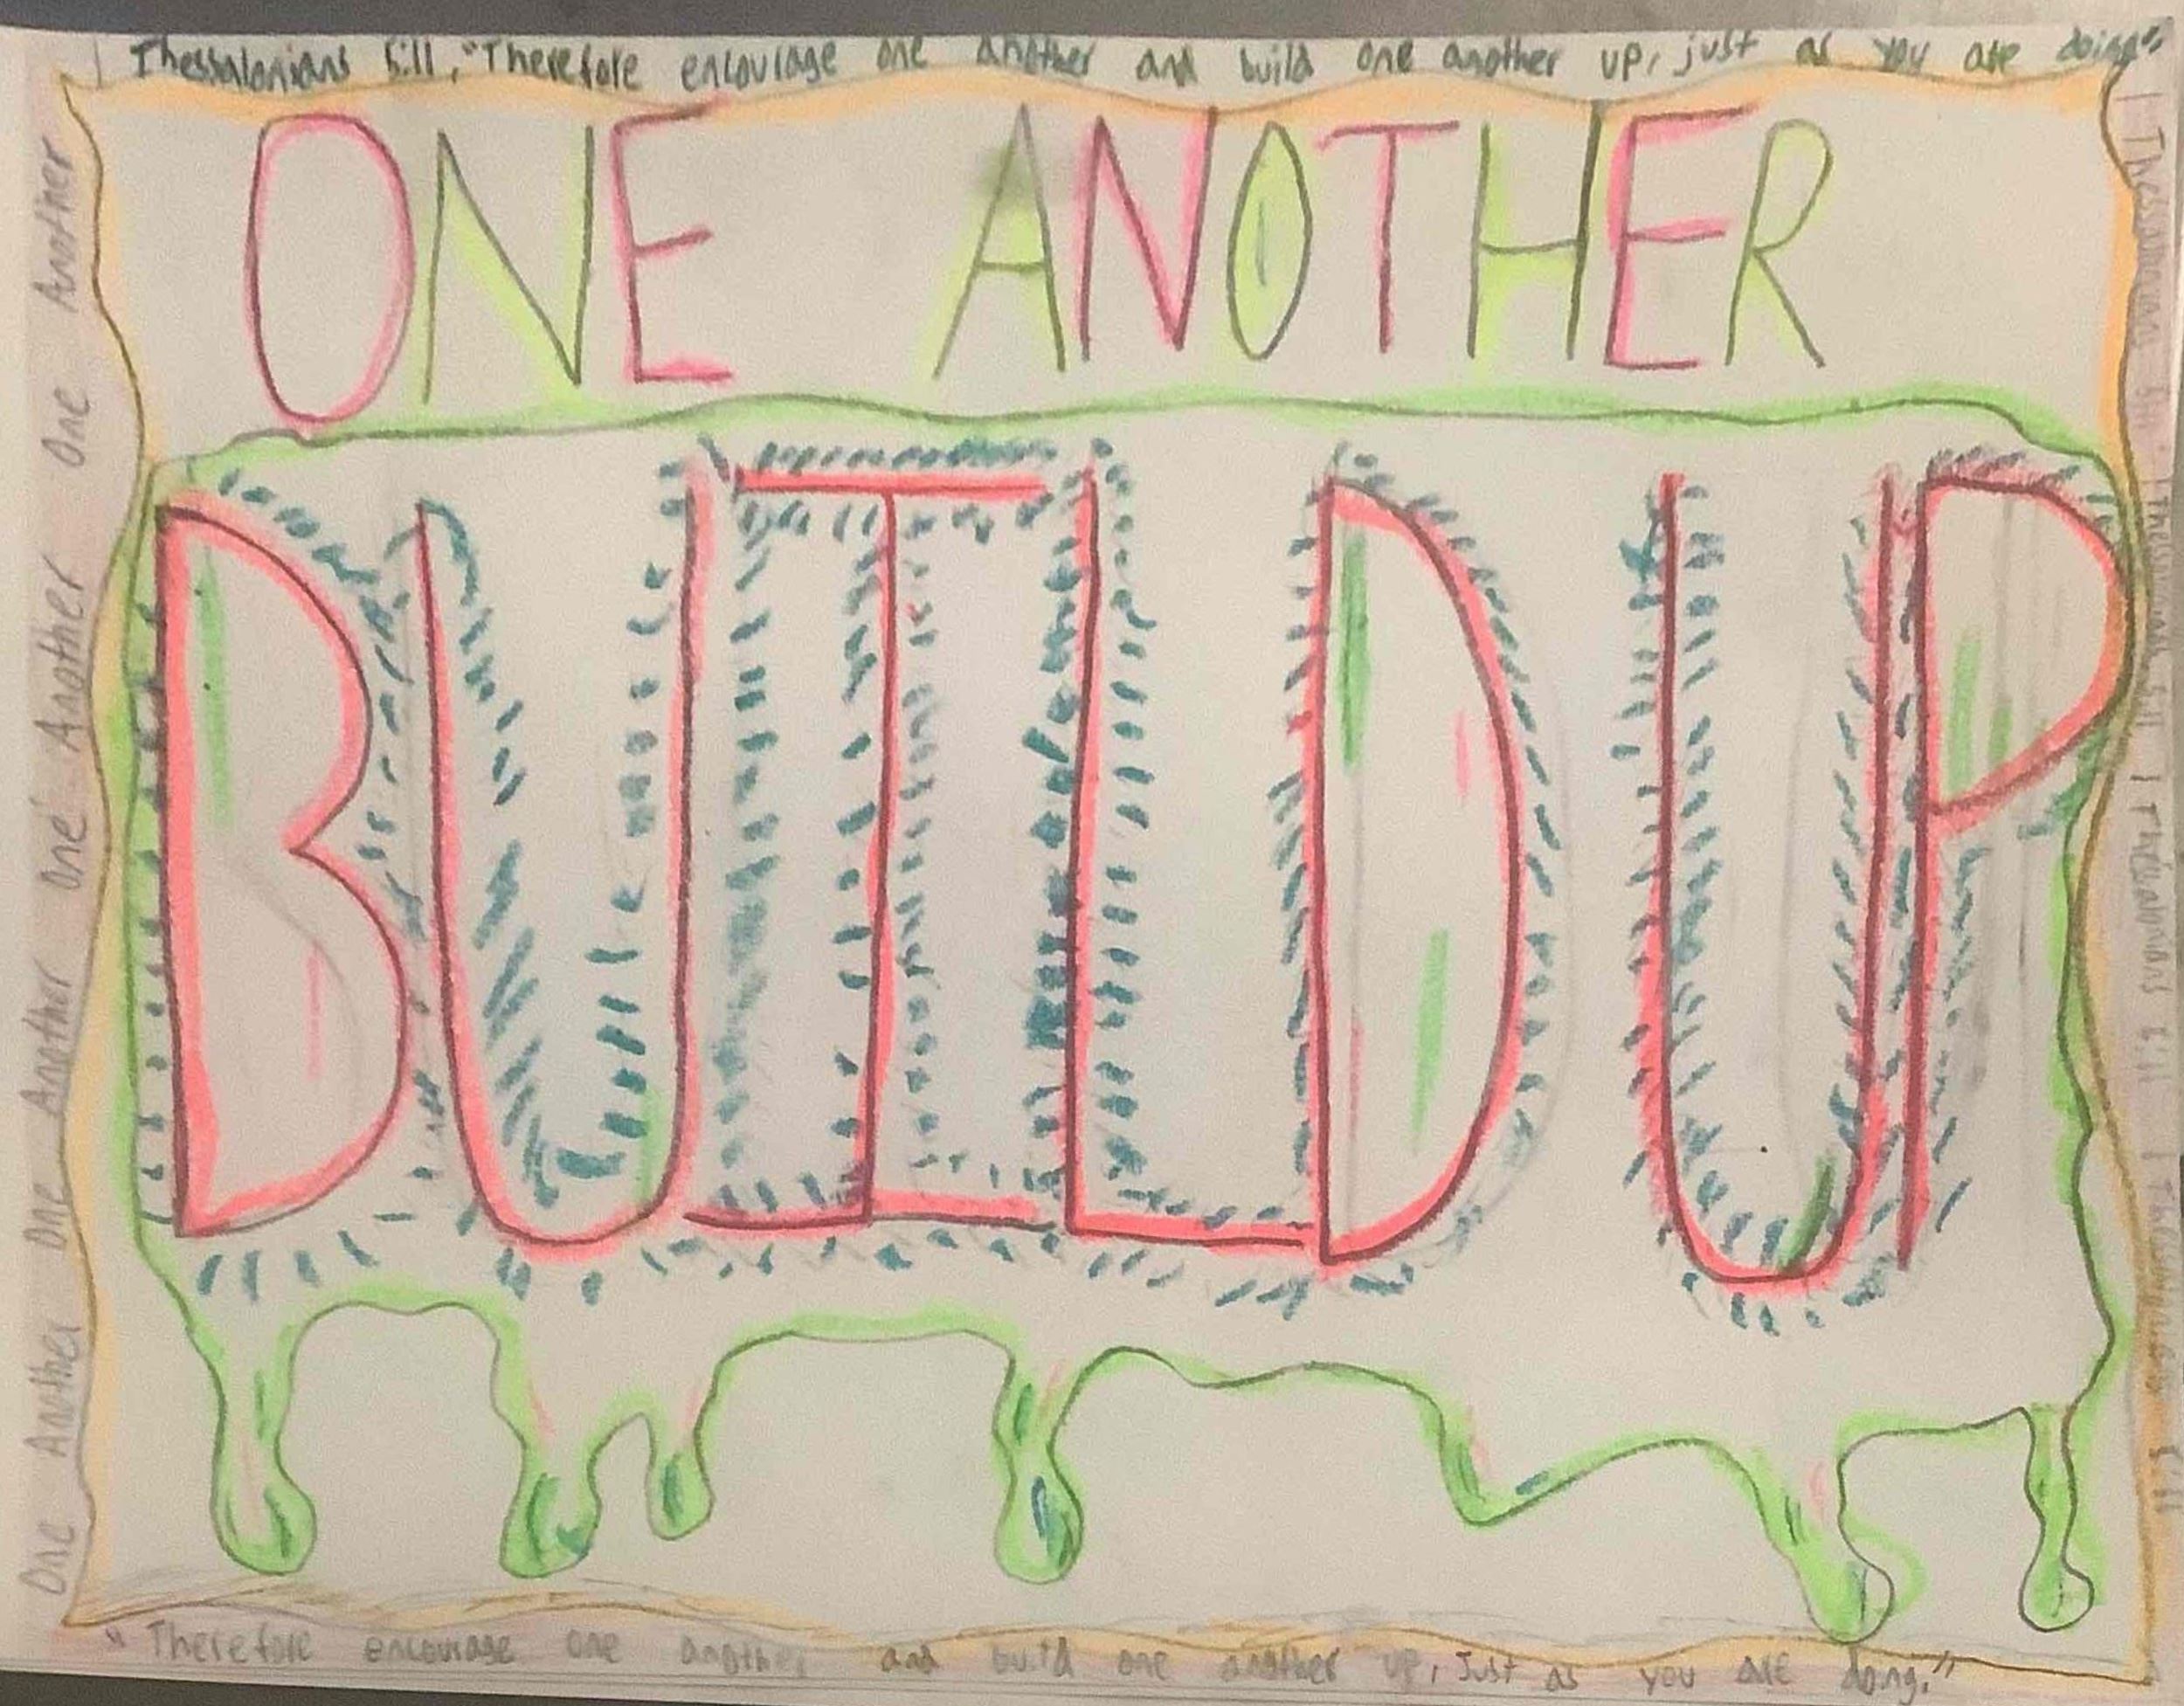 Thessalonians 5:11, "Therefore encourage one another and build one another up, just as you are doing"
ONE ANOTHER
BUILD UP
One Another One Another One Another One Another One Another
| Thessalonians 5:11 | Thessalonians 5:11 | Thessalonians 5:11 | Thessalonians 5:11
"Therefore encourage one another and build one another up, Just as you are doing."